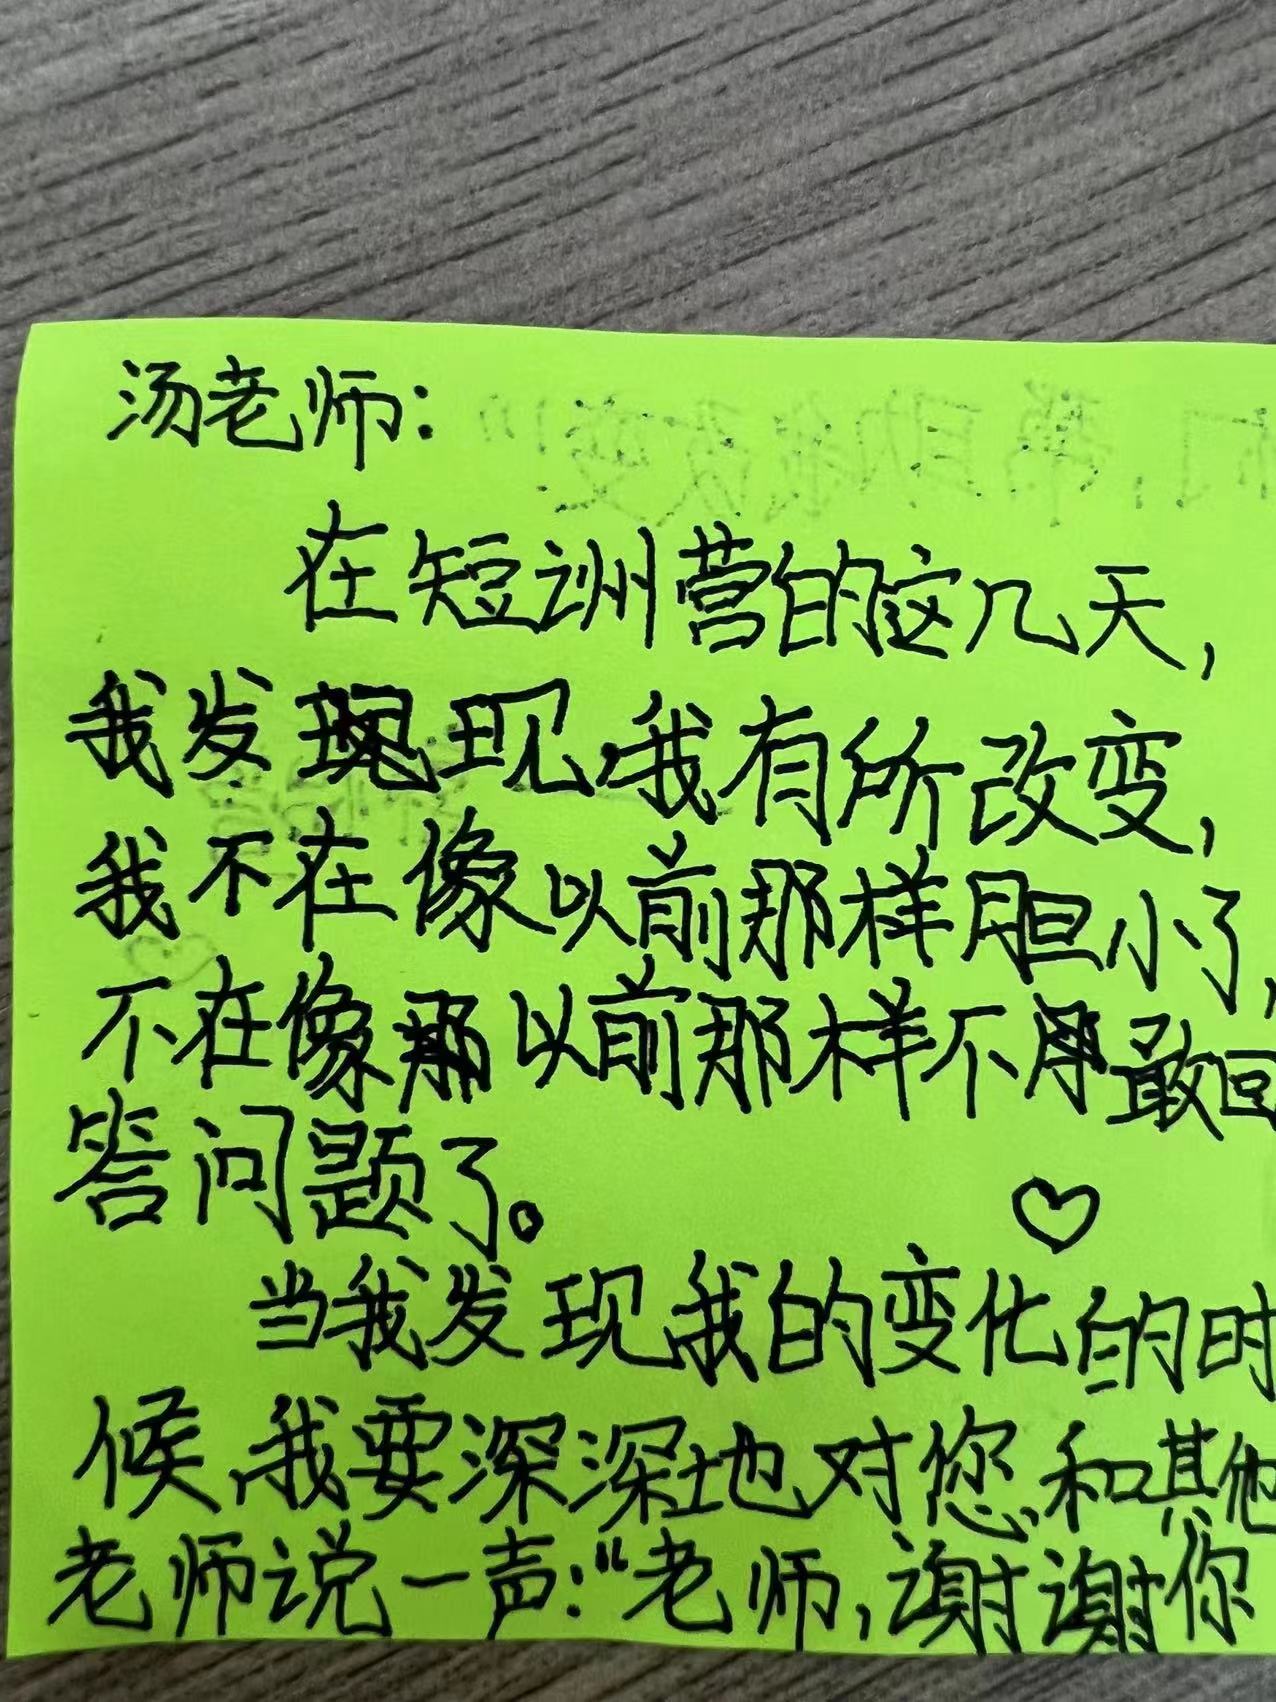 汤老师:
在短训营的这几天,
我发现,我有所改变,
我不在像以前那样胆小了,
不在像以前那样不敢回
答问题了。
当我发现我的变化的时
候,我要深深地对您和其他
老师说一声:“老师,谢谢你